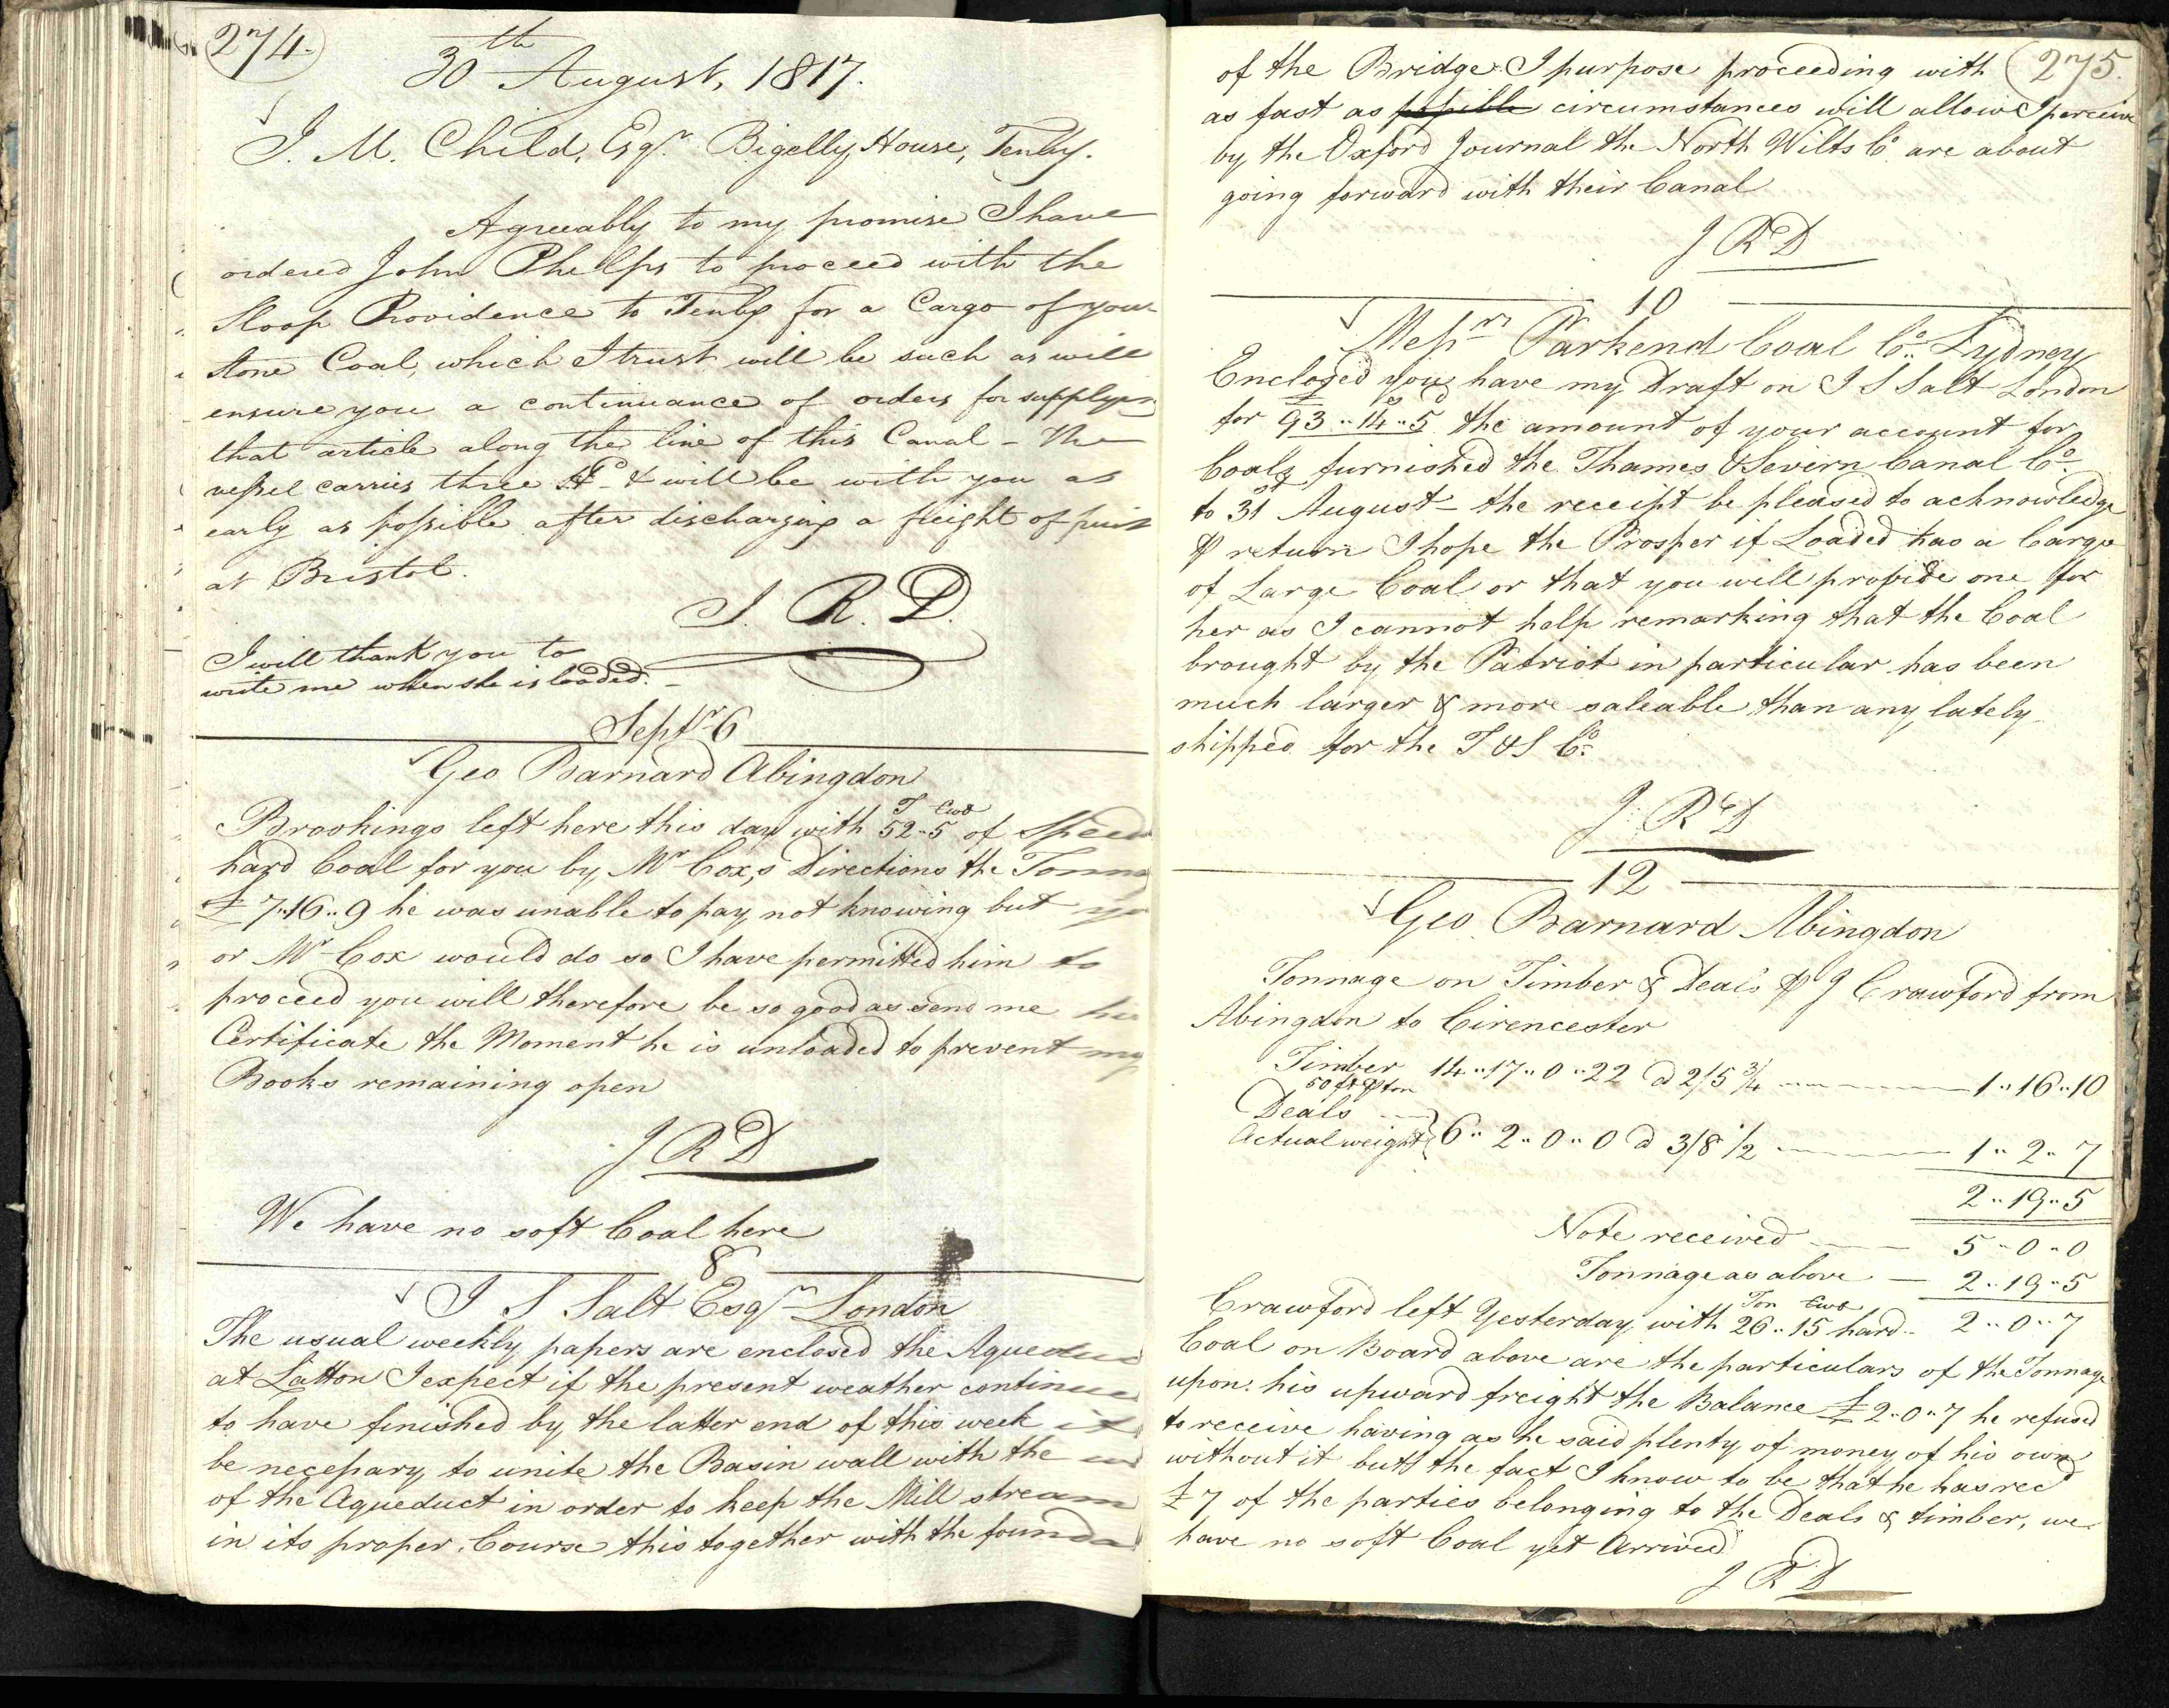 274.
30th August, 1817.
J. M. Child, Esqr. Bigelly House, Tenby.
Agreeably to my promise I have
ordered John Phelps to proceed with the
Sloop Providence to Tenby for a Cargo of your
stone Coal, which I trust will be such as will
ensure you a continuance of orders for supplying
that article along the line of this Canal - The
vessel carries three & will be with you as
early as possible after discharging a freight of
at Bristol.
J. R. D.
I will thank you to
write me when she is loaded. -
Septr. 6
Geo Barnard Abingdon
T Cwt
Brookings left here this day with 52..5 of
hard Coal for you by Mr Cox,s Directions the
£7..16..9 he was unable to pay not knowing but
or Mr Cox would do so I have permitted him to
proceed you will therefore be so good as send me his
Certificate the Moment he is unloaded to prevent my
Books remaining open
J R D
We have no soft Coal here
8
I S Salt Esqr London
The usual weekly papers are enclosed the Aqueduct
at Latton I expect if the present weather continues
to have finished by the latter end of this week it
be necessary to unite the Basin wall with the
of the Aqueduct in order to keep the Mill stream
in its proper Course this together with the founda
275.
of the Bridge I purpose proceeding with
as fast as possible circumstances will allow I perceive
by the Oxford Journal the North Wilts Co. are about
going forward with their Canal
J R D
10
Messrs Parkend Coal Co. Lydney
Enclosed you have my Draft on I S Salt London
£ s d
for 93..14..5 the amount of your account for
Coals furnished the Thames & Severn Canal Co.
to 31st August - the receipt be pleased to acknowledge
P return I hope the Prosper if Loaded has a Cargo
of Large Coal or that you will provide one for
her as I cannot help remarking that the Coal
brought by the Patriot in particular has been
much larger & more saleable than any lately
shipped for the T & S Co.
J. R D
12
Geo. Barnard Abingdon
Tonnage on Timber & Deals P J Crawford from
Abingdon to Cirencester
Timber 14..17..0..22 @ 2/5 3/4 1..16..10
50 ft P ton
Deals
Actual weight } 6..2..0..0 @ 3/8 1/2 1..2..7
2..19..5
Note received 5..0..0
Tonnage as above - 2..19..5
Ton Cwt
Crawford left Yesterday with 26..15 hard 2..0..7
Coal on Board above are the particulars of the Tonnage
upon his upward freight the Balance £2..0..7 he refused
to receive having as he said plenty of money of his own
without it but the fact I know to be that he has recd
£7 of the parties belonging to the Deals & timber, we
have no soft Coal yet Arrived
J R D